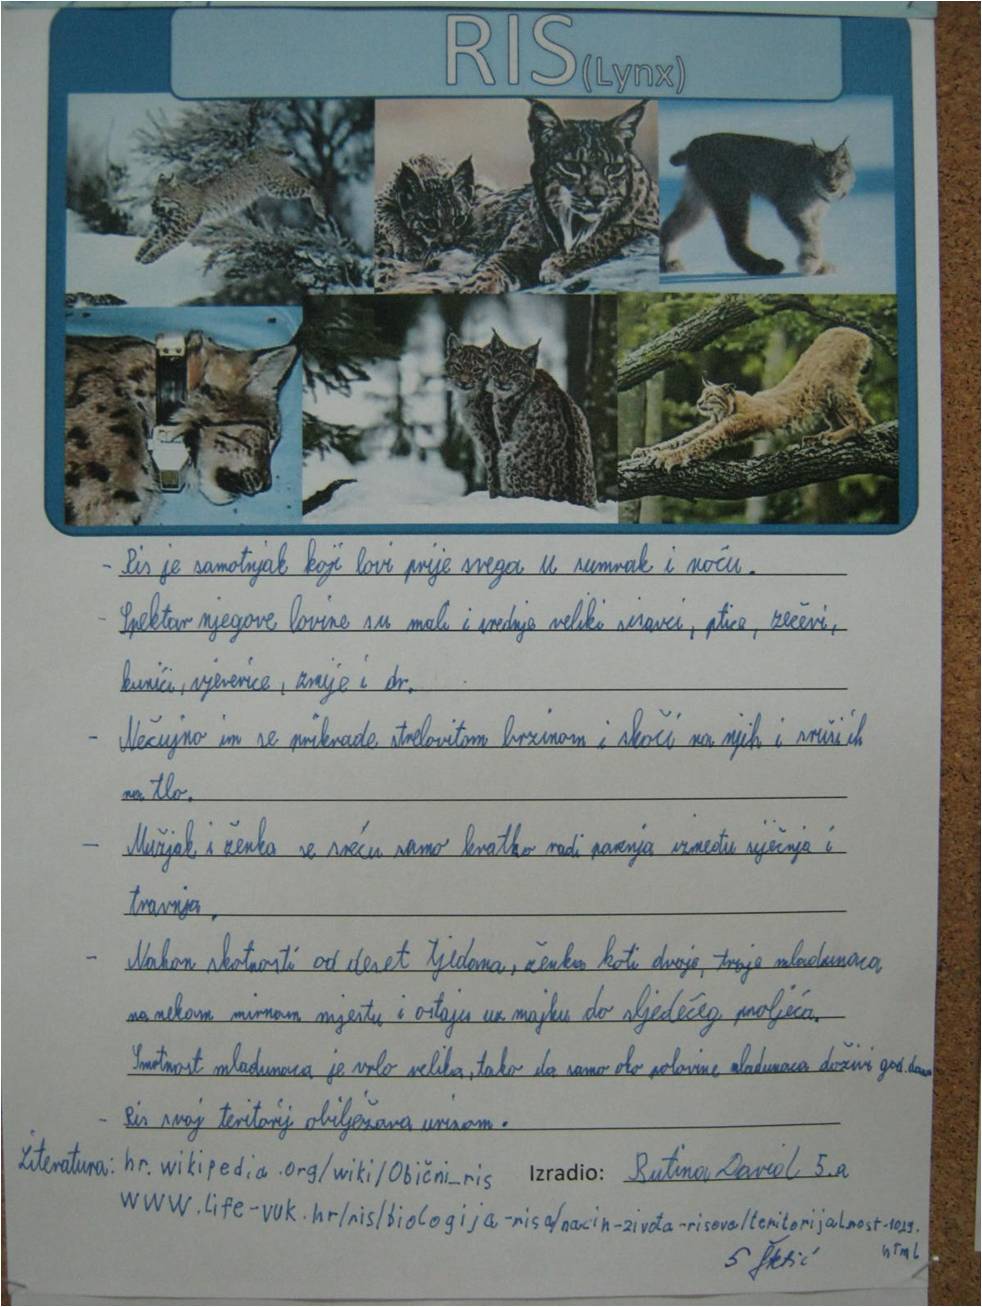 RIS (Lynx)
- Ris je samotnjak koji lovi prije svega u sumrak i noću.
- Spektar njegove lovine su mali i srednje veliki sisavci, ptice, zečevi,
kunići, vjeverice, zmije i dr.
- Nečujno im se prikrade strelovitom brzinom i skoči na njih i sruši ih
na tlo.
- Mužjak i ženka se sreću samo kratko radi parenja između siječnja i
travnja.
- Nakon skotnosti od deset tjedana, ženka koti dvoje, troje mladunaca
na nekom mirnom mjestu i ostaju uz majku do sljedećeg proljeća.
Smrtnost mladunaca je vrlo velika, tako da samo oko polovine mladunaca doživi god. dana
- Ris svoj teritorij obilježava urinom.
Literatura: hr.wikipedia.org/wiki/Obični_ris
Izradio: Butina David 5.a
www.life-vuk.hr/ris/biologija-risa/nacin-života-risova/teritorijalnost-1029.
html
5